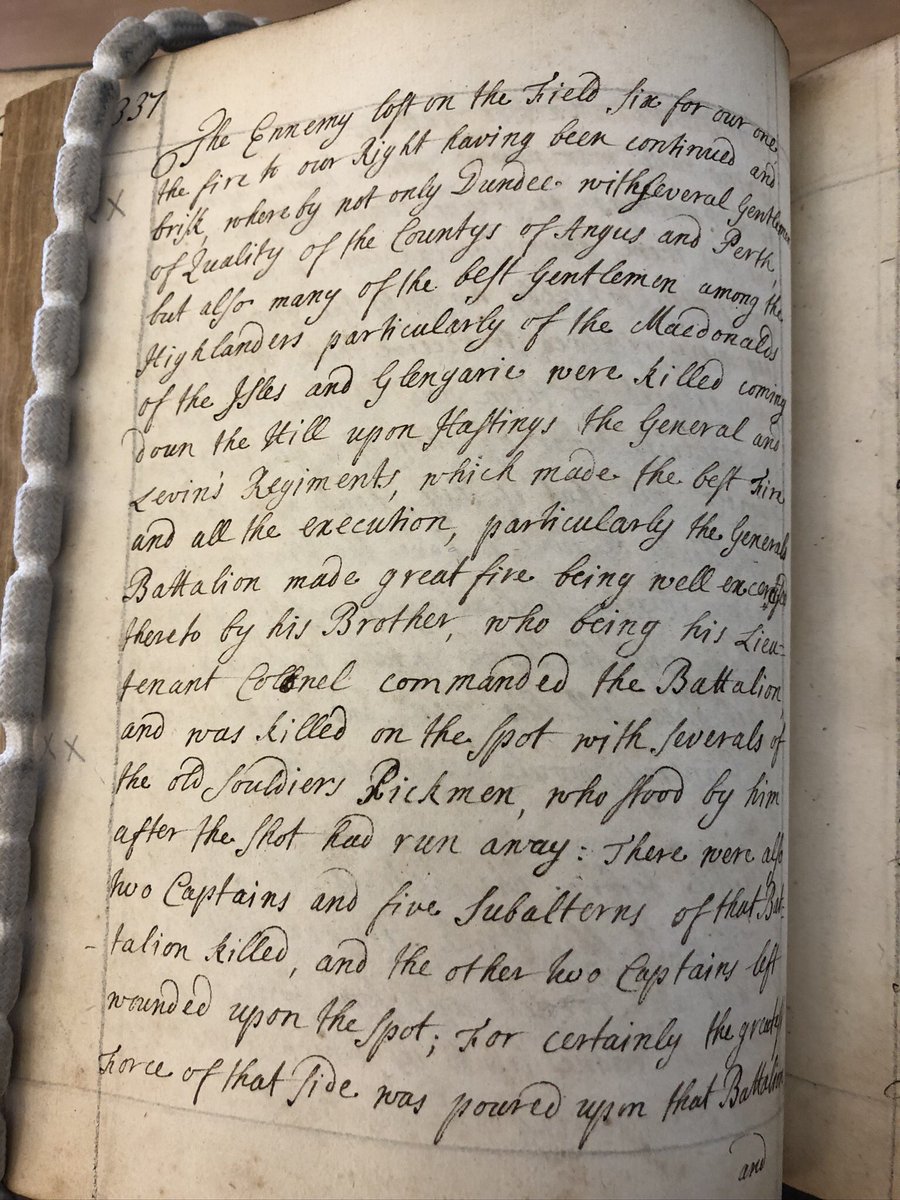 337
The Ennemy lost on the Field six for our one,
the fire to our Right having been continued and
brisk, whereby not only Dundee with several Gentlemen
of Quality of the Countys of Angus and Perth,
but also many of the best Gentlemen among the
Highlanders particularly of the Macdonalds
of the Isles and Glengarie were killed coming
down the Hill upon Hastings the General and
Levin's Regiments, which made the best Fire
and all the execution, particularly the Generals
Battalion made great fire being well
thereto by his Brother, who being his Lieu-
tenant Collonel commanded the Battalion,
and was killed on the spot with severals of
the old Souldiers Pickmen, who stood by him
after the Shot had run away: There were also
two Captains and five Subalterns of that Bat-
talion killed, and the other two Captains left
wounded upon the spot; For certainly the greatest
Force of that Side was poured upon that Battalion
and